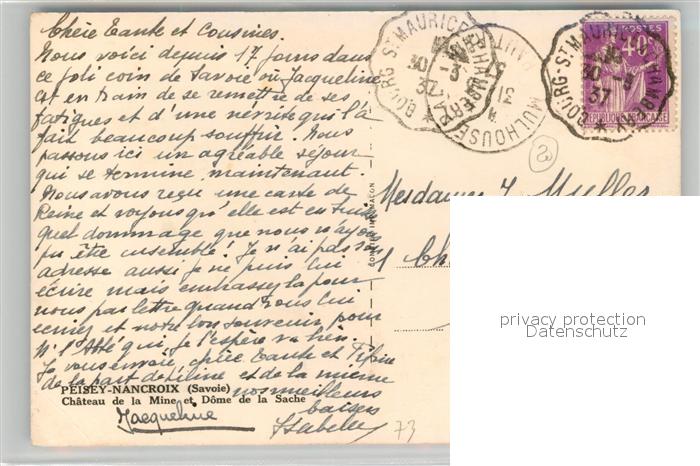 Chère Tante et Cousines.
Nous voici depuis 17 jours dans
ce joli coin de Savoie où Jacqueline
est en train de se remettre de ses
fatigues et d'une névrite qui l'a
fait beaucoup souffrir. Nous
passons ici un agréable séjour
qui se termine maintenant.
Nous avons reçu une carte de
Reine et voyons qu'elle est en
quel dommage que nous n'ayons
pu être ensemble! Je n'ai pas son
adresse aussi je ne puis lui
écrire mais embrassez la pour
nous par lettre quand vous lui
écrirez et notre bon souvenir pour
M. l'Abbé qui, je l'espère va bien.
Je vous envoie, chère Tante et
de la part de et de la mienne
nos meilleurs
baisers
Jacqueline
Isabelle
PEISEY-NANCROIX (Savoie)
Château de la Mine et Dôme de la Sache
73
BOURG-ST MAURICE A CHAMBERY
30 -3
37
MULHOUSE
BOURG-ST MAURICE A CHAMBERY
30 -3
37
POSTES
40
REPUBLIQUE FRANÇAISE
Mesdames J. Muller
1
privacy protection
Datenschutz